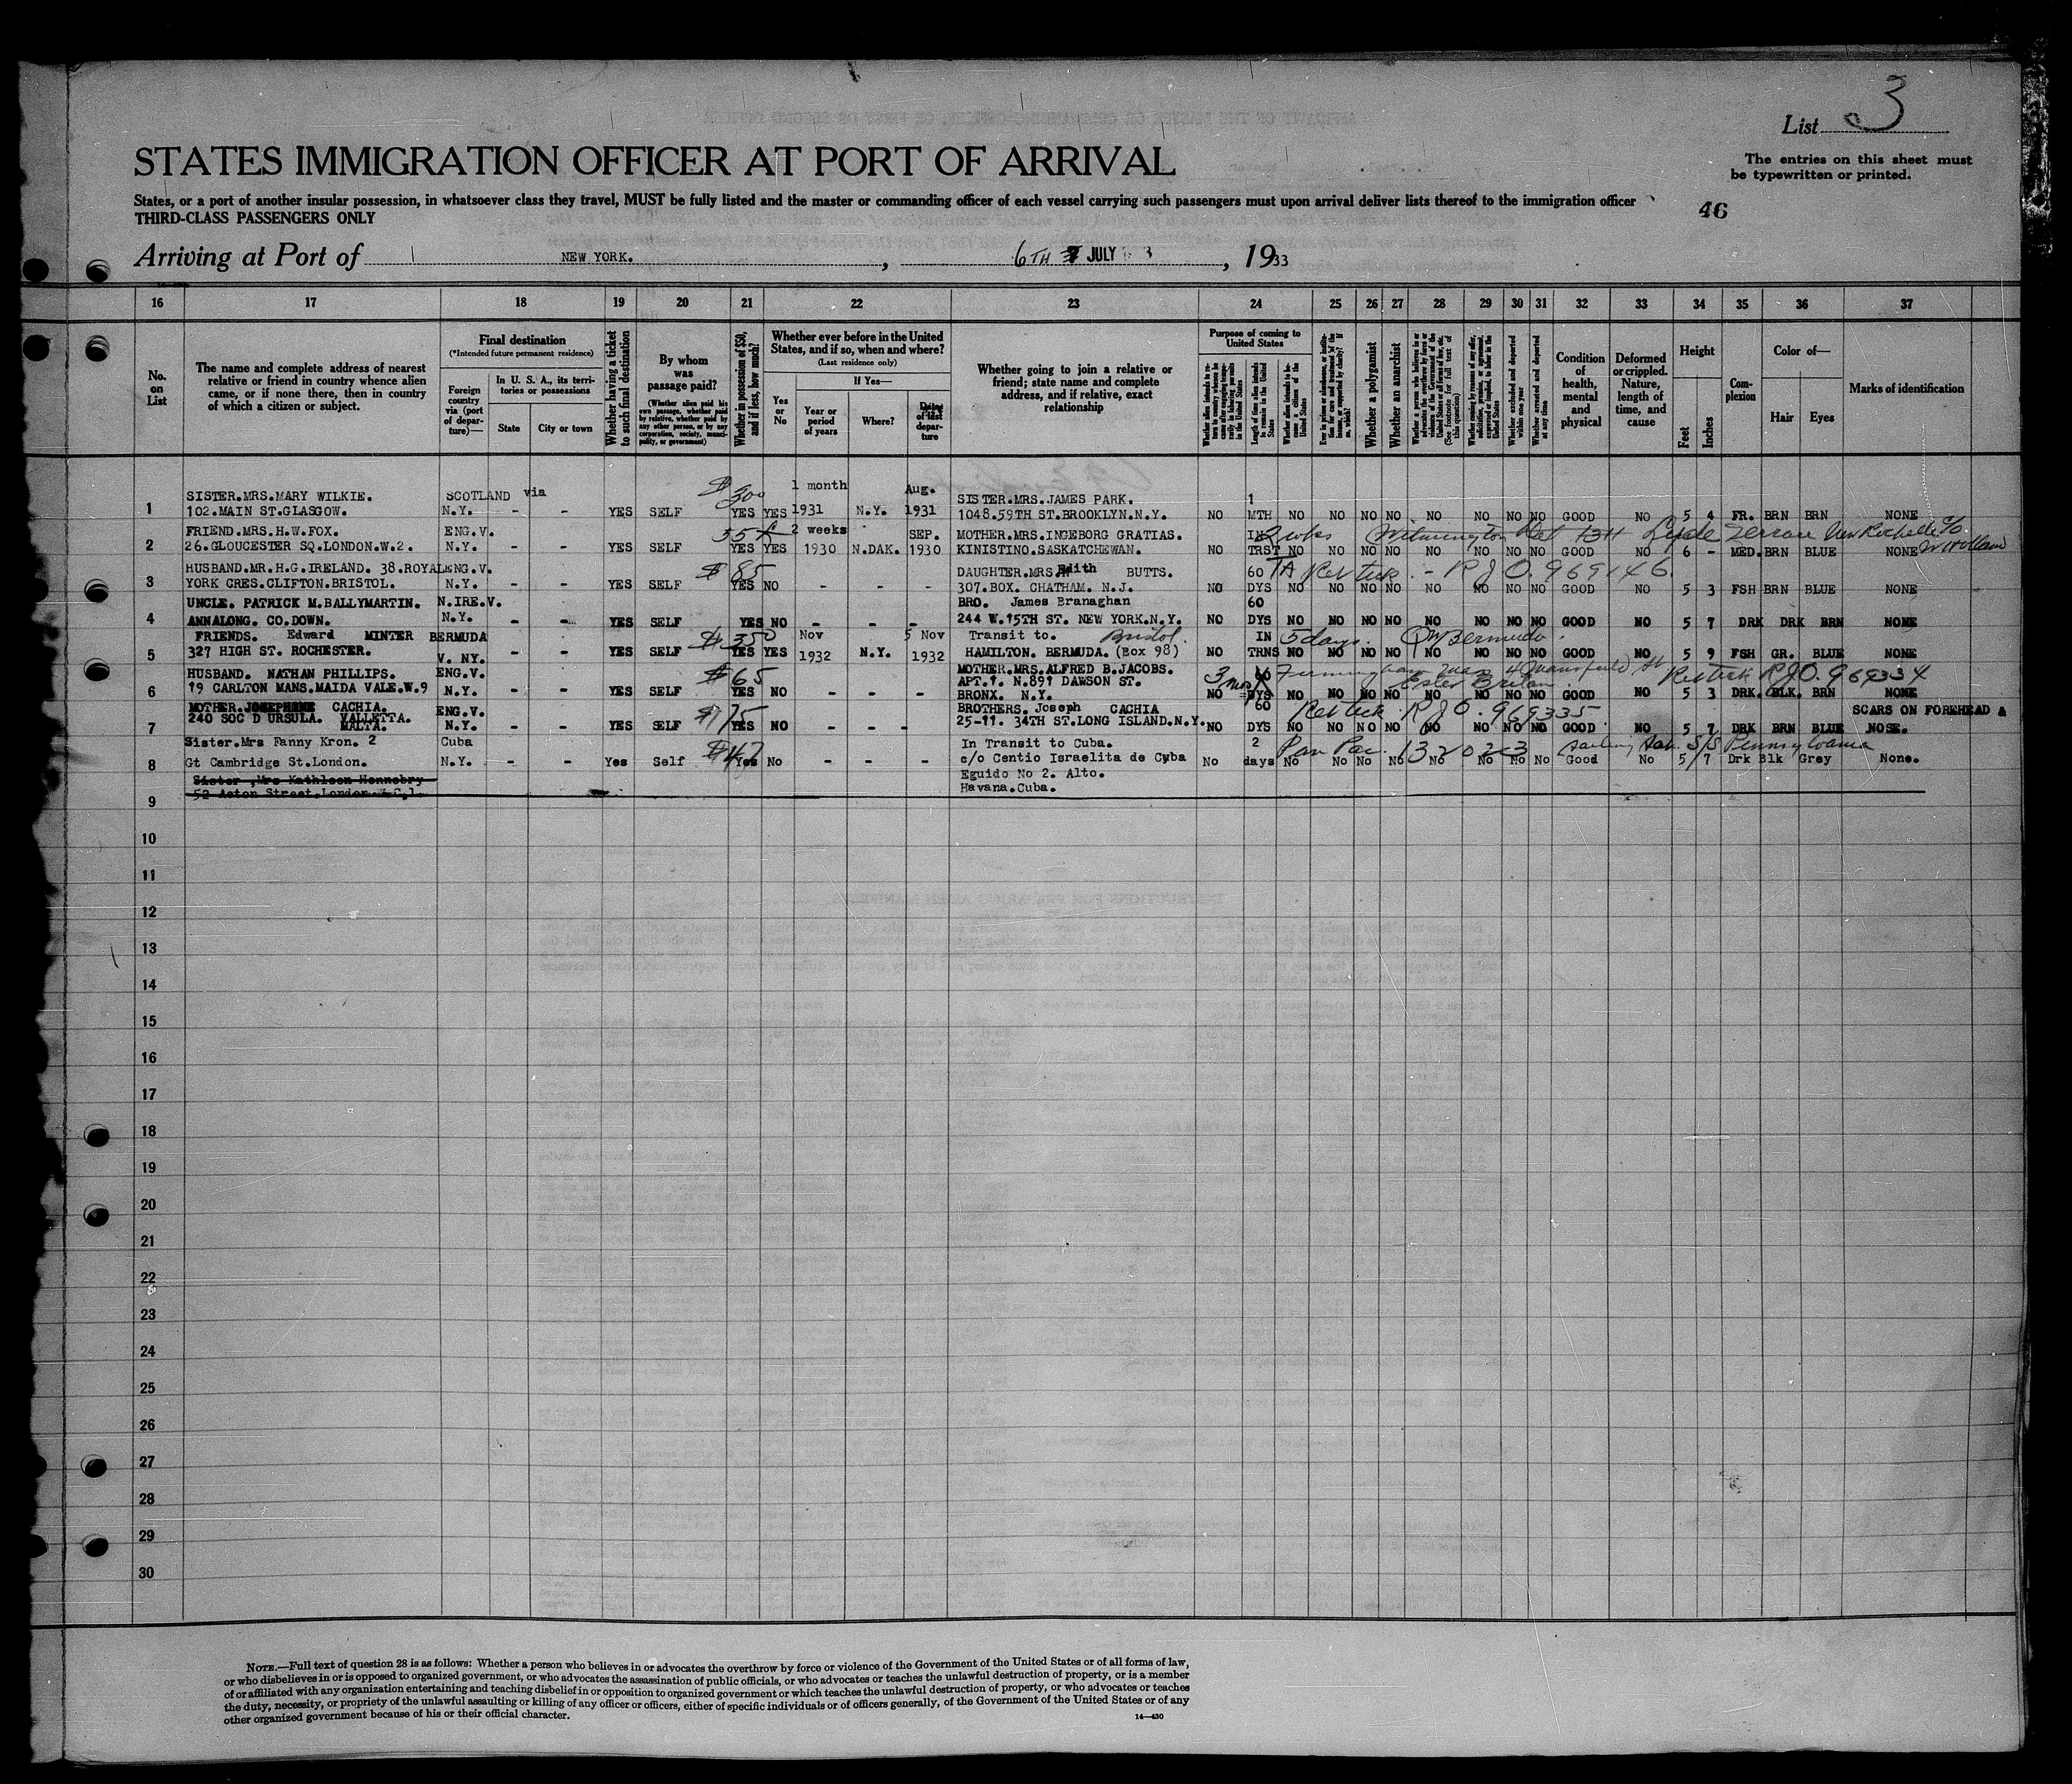 List 3
STATES IMMIGRATION OFFICER AT PORT OF ARRIVAL
The entries on this sheet must
be typewritten or printed.
States, or a port of another insular possession, in whatsoever class they travel, MUST be fully listed and the master or commanding officer of each vessel carrying such passengers must upon arrival deliver lists thereof to the immigration officer
THIRD-CLASS PASSENGERS ONLY
46
Arriving at Port of NEW YORK. , 6TH JULY 3 , 1933
16 17 18 19 20 21 22 23 24 25 26 27 28 29 30 31 32 33 34 35 36 37
No. on List
The name and complete address of nearest
relative or friend in country whence alien
came, or if none there, then in country
of which a citizen or subject.
Final destination
(*Intended future permanent residence)
Foreign country via (port of departure)—
In U. S. A., its territories or possessions
State
City or town
Whether having a ticket to such final destination
By whom was passage paid?
(Whether alien paid his own passage, whether paid by relative, whether paid by any other person, or by any corporation, society, municipality, or government)
Whether in possession of $50, and if less, how much?
Whether ever before in the United States, and if so, when and where?
(Last residence only)
Yes or No
If Yes—
Year or period of years
Where?
Date of last departure
Whether going to join a relative or
friend; state name and complete
address, and if relative, exact
relationship
Purpose of coming to United States
Length of time alien intends to remain in the United States
Whether alien intends to become a citizen of the United States
Whether a polygamist
Whether an anarchist
(See footnote for full text of this question)
Whether excluded and deported within one year
Whether arrested and deported at any time
Condition of health, mental and physical
Deformed or crippled. Nature, length of time, and cause
Height
Feet
Inches
Complexion
Color of—
Hair
Eyes
Marks of identification
1 month Aug.
SISTER.MRS.MARY WILKIE. SCOTLAND via $300 SISTER.MRS.JAMES PARK. 1
1 102.MAIN ST.GLASGOW. N.Y. - - YES SELF YES YES 1931 N.Y. 1931 1048.59TH ST.BROOKLYN.N.Y. NO MTH NO NO NO NO NO NO NO NO GOOD NO 5 4 FR. BRN BRN NONE
FRIEND.MRS.H.W.FOX. ENG.V. 2 weeks SEP. MOTHER.MRS.INGEBORG GRATIAS. IN 2 wks Wilmington Del New Rochelle
2 26.GLOUCESTER SQ.LONDON.W.2. N.Y. - - YES SELF YES YES 1930 N.DAK. 1930 KINISTINO.SASKATCHEWAN. NO TRST NO NO NO NO NO NO NO NO GOOD NO 6 - MED. BRN BLUE NONE
HUSBAND.MR.H.G.IRELAND. 38.ROYAL ENG.V. $85 DAUGHTER.MRS. Edith BUTTS. 60 - RJO.969146
3 YORK CRES.CLIFTON.BRISTOL. N.Y. - - YES SELF YES NO - - - 307.BOX. CHATHAM. N.J. NO DYS NO NO NO NO NO NO NO NO GOOD NO 5 3 FSH BRN BLUE NONE
UNCLE. PATRICK M.BALLYMARTIN. N.IRE.V. BRO. James Branaghan 60
4 ANNALONG. CO.DOWN. N.Y. - - YES SELF YES NO - - - 244 W.15TH ST. NEW YORK.N.Y. NO DYS NO NO NO NO NO NO NO NO GOOD NO 5 7 DRK DRK BRN NONE
FRIENDS. Edward MINTER BERMUDA $350 Nov 5 Nov Transit to. Bristol. IN 5 days. Bermuda.
5 327 HIGH ST. ROCHESTER. V. NY. - - YES SELF YES YES 1932 N.Y. 1932 HAMILTON. BERMUDA. (Box 98) NO TRNS NO NO NO NO NO NO NO NO GOOD NO 5 9 FSH GR. BLUE NONE
HUSBAND. NATHAN PHILLIPS. ENG.V. $65 MOTHER.MRS.ALFRED B.JACOBS. 3 mos RJO.969334
APT.1. N.891 DAWSON ST.
6 19 CARLTON MANS.MAIDA VALE.W.9 N.Y. - - YES SELF YES NO - - - BRONX. N.Y. NO DYS NO NO NO NO NO NO NO NO GOOD NO 5 3 DRK. BLK. BRN NONE
MOTHER.JOSEPHINE CACHIA. ENG.V. $75 BROTHERS. Joseph CACHIA 60 Ret tick RJO.969335 SCARS ON FOREHEAD &
7 240 SOC D URSULA. VALLETTA. MALTA. N.Y. - - YES SELF YES NO - - - 25-11. 34TH ST.LONG ISLAND.N.Y. NO DYS NO NO NO NO NO NO NO NO GOOD NO 5 7 DRK BRN BLUE NOSE.
Sister.Mrs Fanny Kron. 2 Cuba $47 In Transit to Cuba. 2 Pan Pac. 1320223 sailing Sat. S/S Pennsylvania
8 Gt Cambridge St.London. N.Y. - - Yes Self Yes No - - - c/o Centio Israelita de Cuba No days No No No No No No No No Good No 5/7 Drk Blk Grey None.
Sister ,Mrs Kathleen Hennebry Eguido No 2. Alto.
9 52 Acton Street.London.W.C.1. Havana.Cuba.
10
11
12
13
14
15
16
17
18
19
20
21
22
23
24
25
26
27
28
29
30
NOTE.—Full text of question 28 is as follows: Whether a person who believes in or advocates the overthrow by force or violence of the Government of the United States or of all forms of law,
or who disbelieves in or is opposed to organized government, or who advocates the assassination of public officials, or who advocates or teaches the unlawful destruction of property, or is a member
of or affiliated with any organization entertaining and teaching disbelief in or opposition to organized government or which teaches the unlawful destruction of property, or who advocates or teaches
the duty, necessity, or propriety of the unlawful assaulting or killing of any officer or officers, either of specific individuals or of officers generally, of the Government of the United States or of any
other organized government because of his or their official character.
14—430